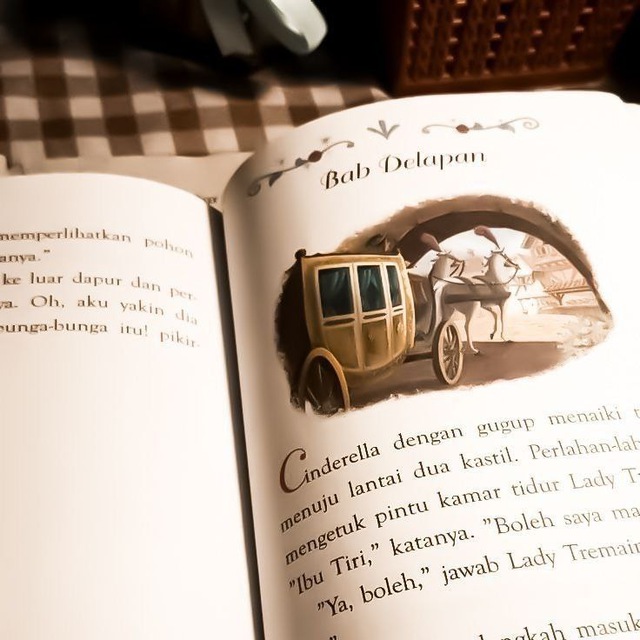 memperlihatkan pohon
anya."
ke luar dapur dan per-
ya. Oh, aku yakin dia
bunga-bunga itu! pikir
Bab Delapan
Cinderella dengan gugup menaiki
menuju lantai dua kastil. Perlahan-lah
mengetuk pintu kamar tidur Lady T
"Ibu Tiri," katanya. "Boleh saya ma
"Ya, boleh," jawab Lady Tremain
masuk